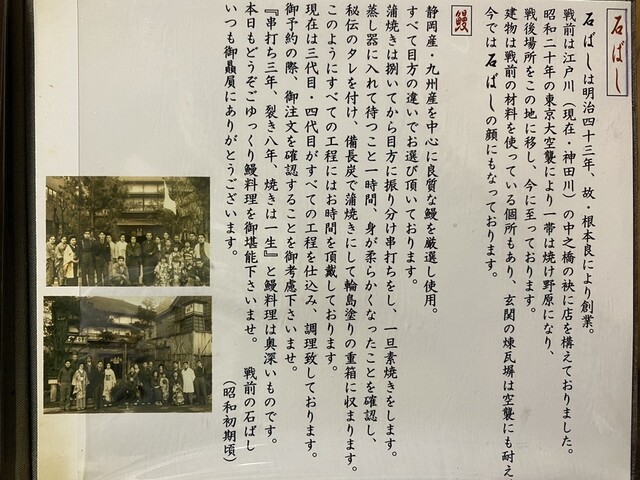 石ばし
石ばしは明治四十三年、故・根本良により創業。
戦前は江戸川（現在・神田川）の中之橋の袂に店を構えておりました。
昭和二十年の東京大空襲により一帯は焼け野原になり、
戦後場所をこの地に移し、今に至っております。
建物は戦前の材料を使っている個所もあり、玄関の煉瓦塀は空襲にも耐え
今では石ばしの顔にもなっております。
鰻
静岡産・九州産を中心に良質な鰻を厳選し使用。
すべて目方の違いでお選び頂いております。
蒲焼きは捌いてから目方に振り分け串打ちをし、一旦素焼きをします。
蒸し器に入れて待つこと一時間、身が柔らかくなったことを確認し、
秘伝のタレを付け、備長炭で蒲焼きにして輪島塗りの重箱に収まります。
このようにすべての工程にはお時間を頂戴しております。
現在は三代目・四代目がすべての工程を仕込み、調理致しております。
御予約の際、御注文を確認することを御考慮下さいませ。
『串打ち三年、裂き八年、焼きは一生』と鰻料理は奥深いものです。
本日もどうぞごゆっくり鰻料理を御堪能下さいませ。
いつも御贔屓にありがとうございます。
戦前の石ばし
（昭和初期頃）